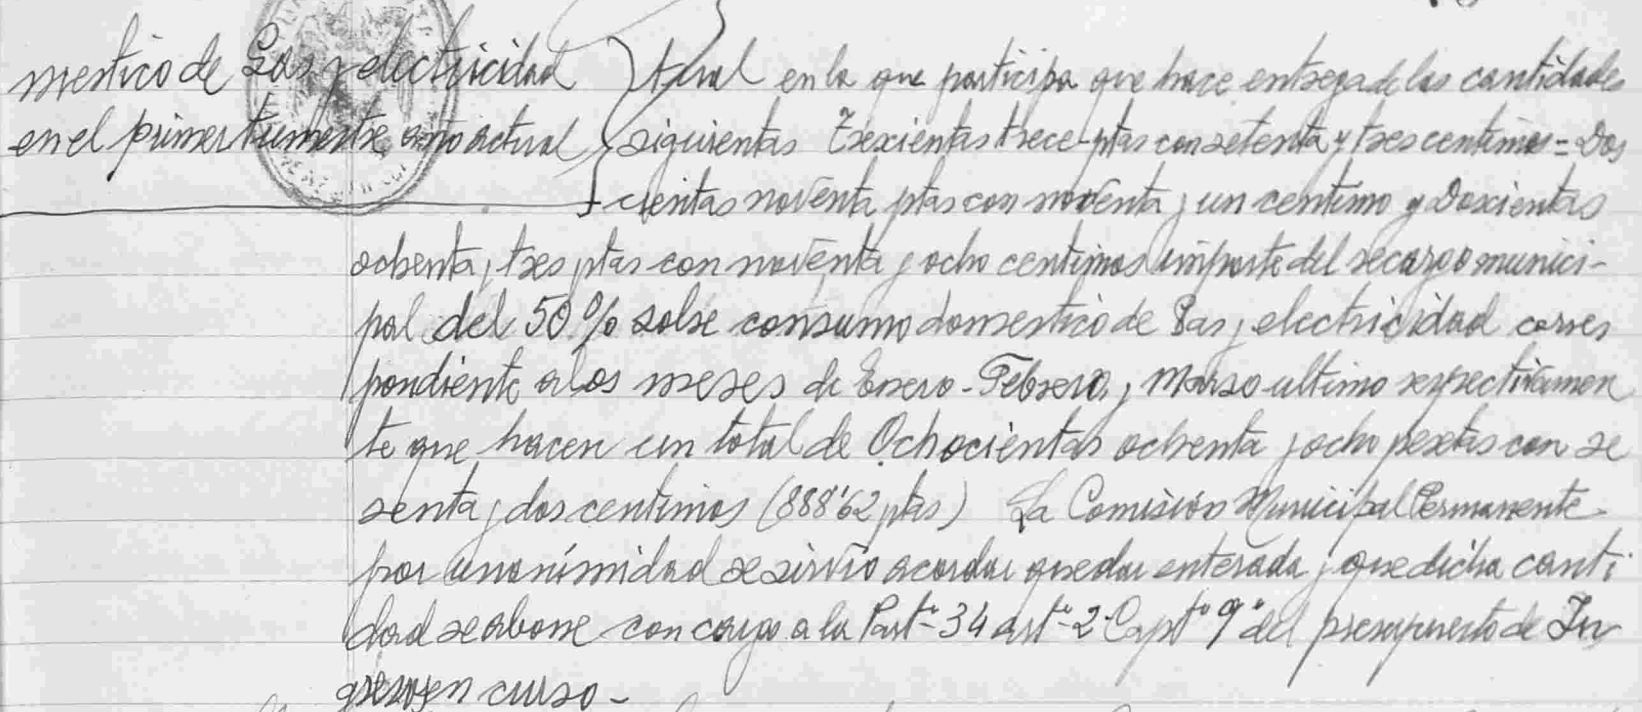 mestico de Gas y electricidad
en el primer trimestre año actual
tual en la que participa que hace entrega de las cantidades
siguientas Trexientas trece ptas con setenta y tres centimos = Dos
cientas noventa ptas con noventa y un centimo y Doscientas
ochenta y tres ptas con noventa y ocho centimos importe del recargo munici-
pal del 50 % sobre consumo domestico de Gas y electricidad corres
pondiente a los meses de Enero - Febrero y Marzo ultimo respectivamen
te que hacen un total de Ochocientas ochenta y ocho pesetas con se
senta y dos centimos (888'62 ptas) La Comisión Municipal Permanente
por unanímidad se sirvio acordar quedar enterada y que dicha canti
dad se abone con cargo a la Partª 34 artº 2º Captº 9º del presupuesto de In
gresos en curso -